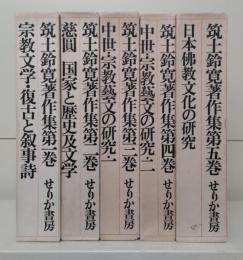 筑土鈴寛著作集第一巻 せりか書房
宗教文学・復古と叙事詩
筑土鈴寛著作集第二巻 せりか書房
慈圓 国家と歴史及文学
筑土鈴寛著作集第三巻 せりか書房
中世・宗教藝文の研究・一
筑土鈴寛著作集第四巻 せりか書房
中世・宗教藝文の研究・二
筑土鈴寛著作集第五巻 せりか書房
日本佛教文化の研究